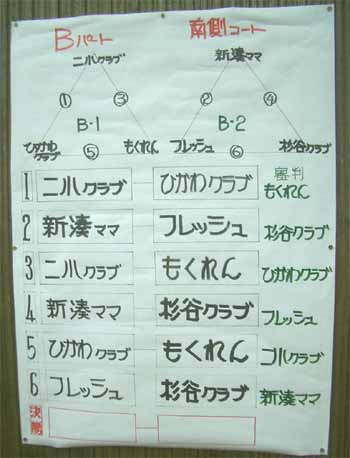 Bパート 南側コート
二小クラブ 新湊ママ
① ③ ② ④
B-1 B-2
ひかわクラブ ⑤ もくれん フレッシュ ⑥ 杉谷クラブ
審判
1 二小クラブ ひかわクラブ もくれん
2 新湊ママ フレッシュ 杉谷クラブ
3 二小クラブ もくれん ひかわクラブ
4 新湊ママ 杉谷クラブ フレッシュ
5 ひかわクラブ もくれん 二小クラブ
6 フレッシュ 杉谷クラブ 新湊ママ
決勝